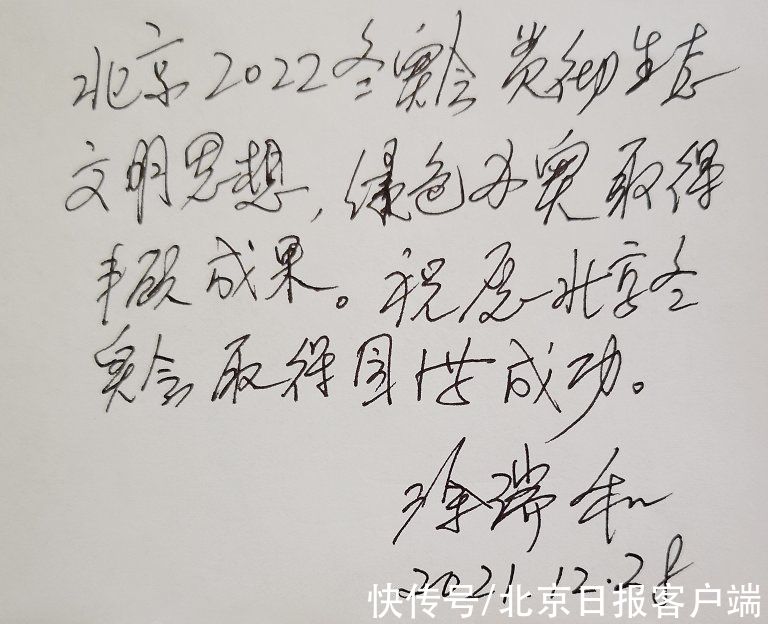 北京2022冬奥会贯彻生态
文明思想，绿色办奥取得
丰硕成果。祝愿北京冬
奥会取得圆满成功。
涂瑞和
2021.12.28
快传号/北京日报客户端